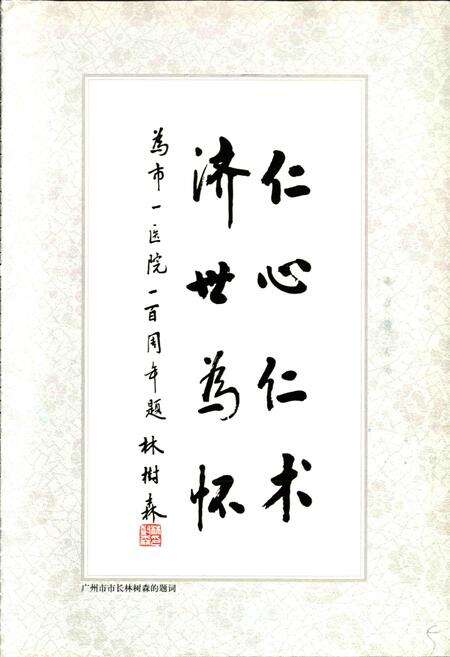 仁心仁术
济世为怀
為市一医院一百周年题 林樹森
广州市市长林树森的题词